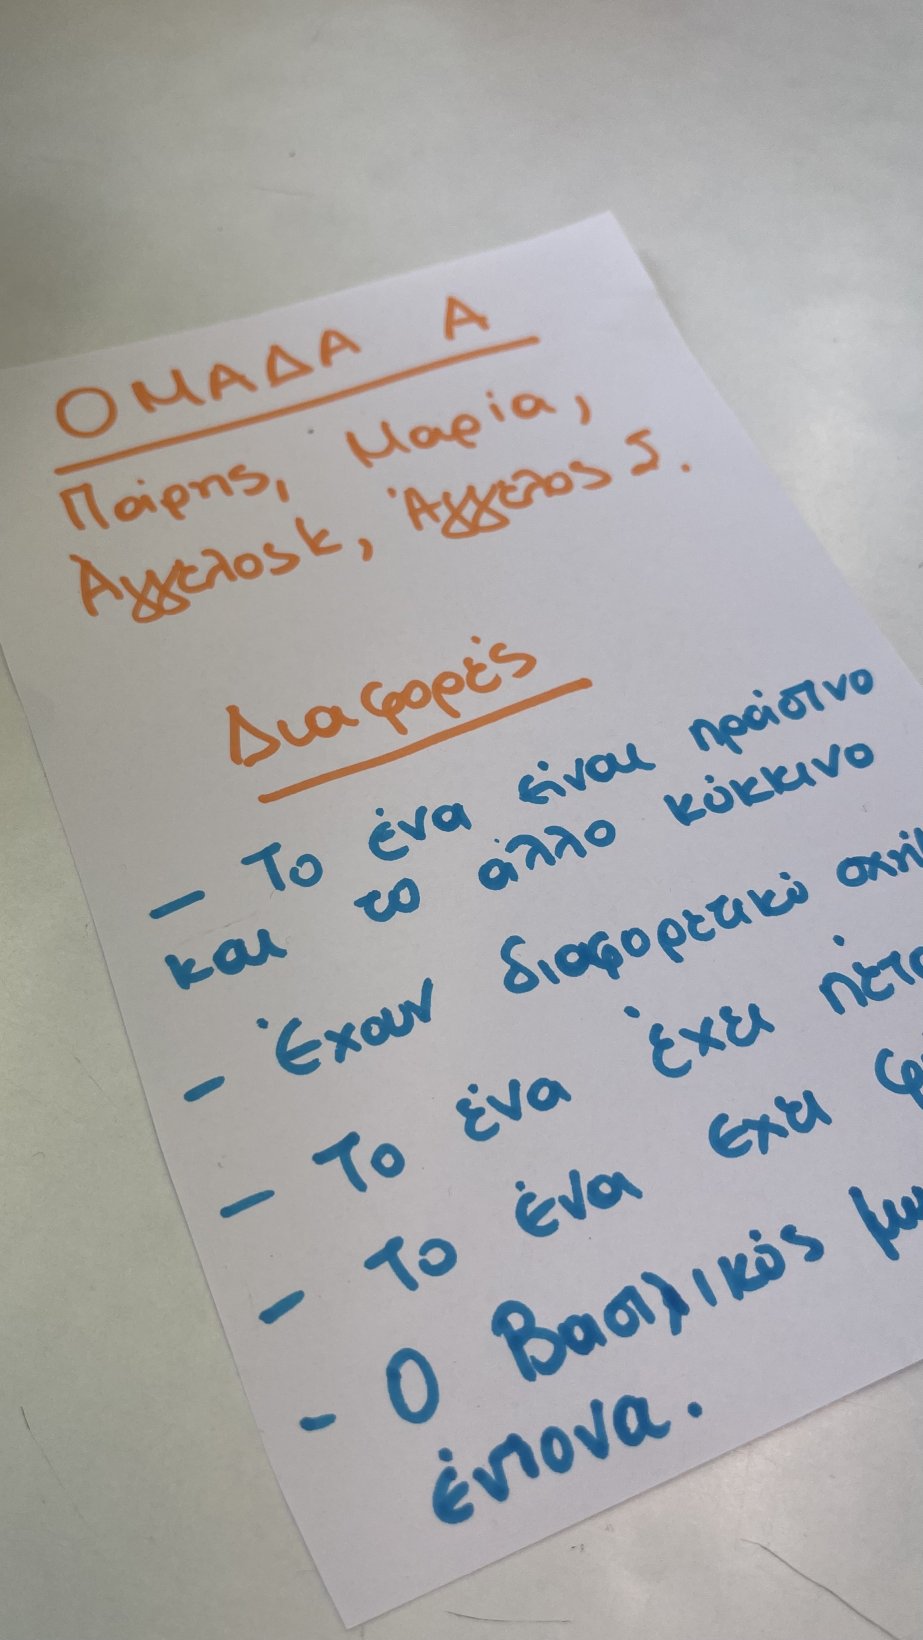 ΟΜΑΔΑ Α
Πάρης, Μαρία,
Άγγελος Κ, Άγγελος Σ.
Διαφορές
- Το ένα είναι πράσινο
και το άλλο κόκκινο
- Έχουν διαφορετικό
- Το ένα έχει
- Το ένα εχει
- Ο Βασιλικός
έντονα.